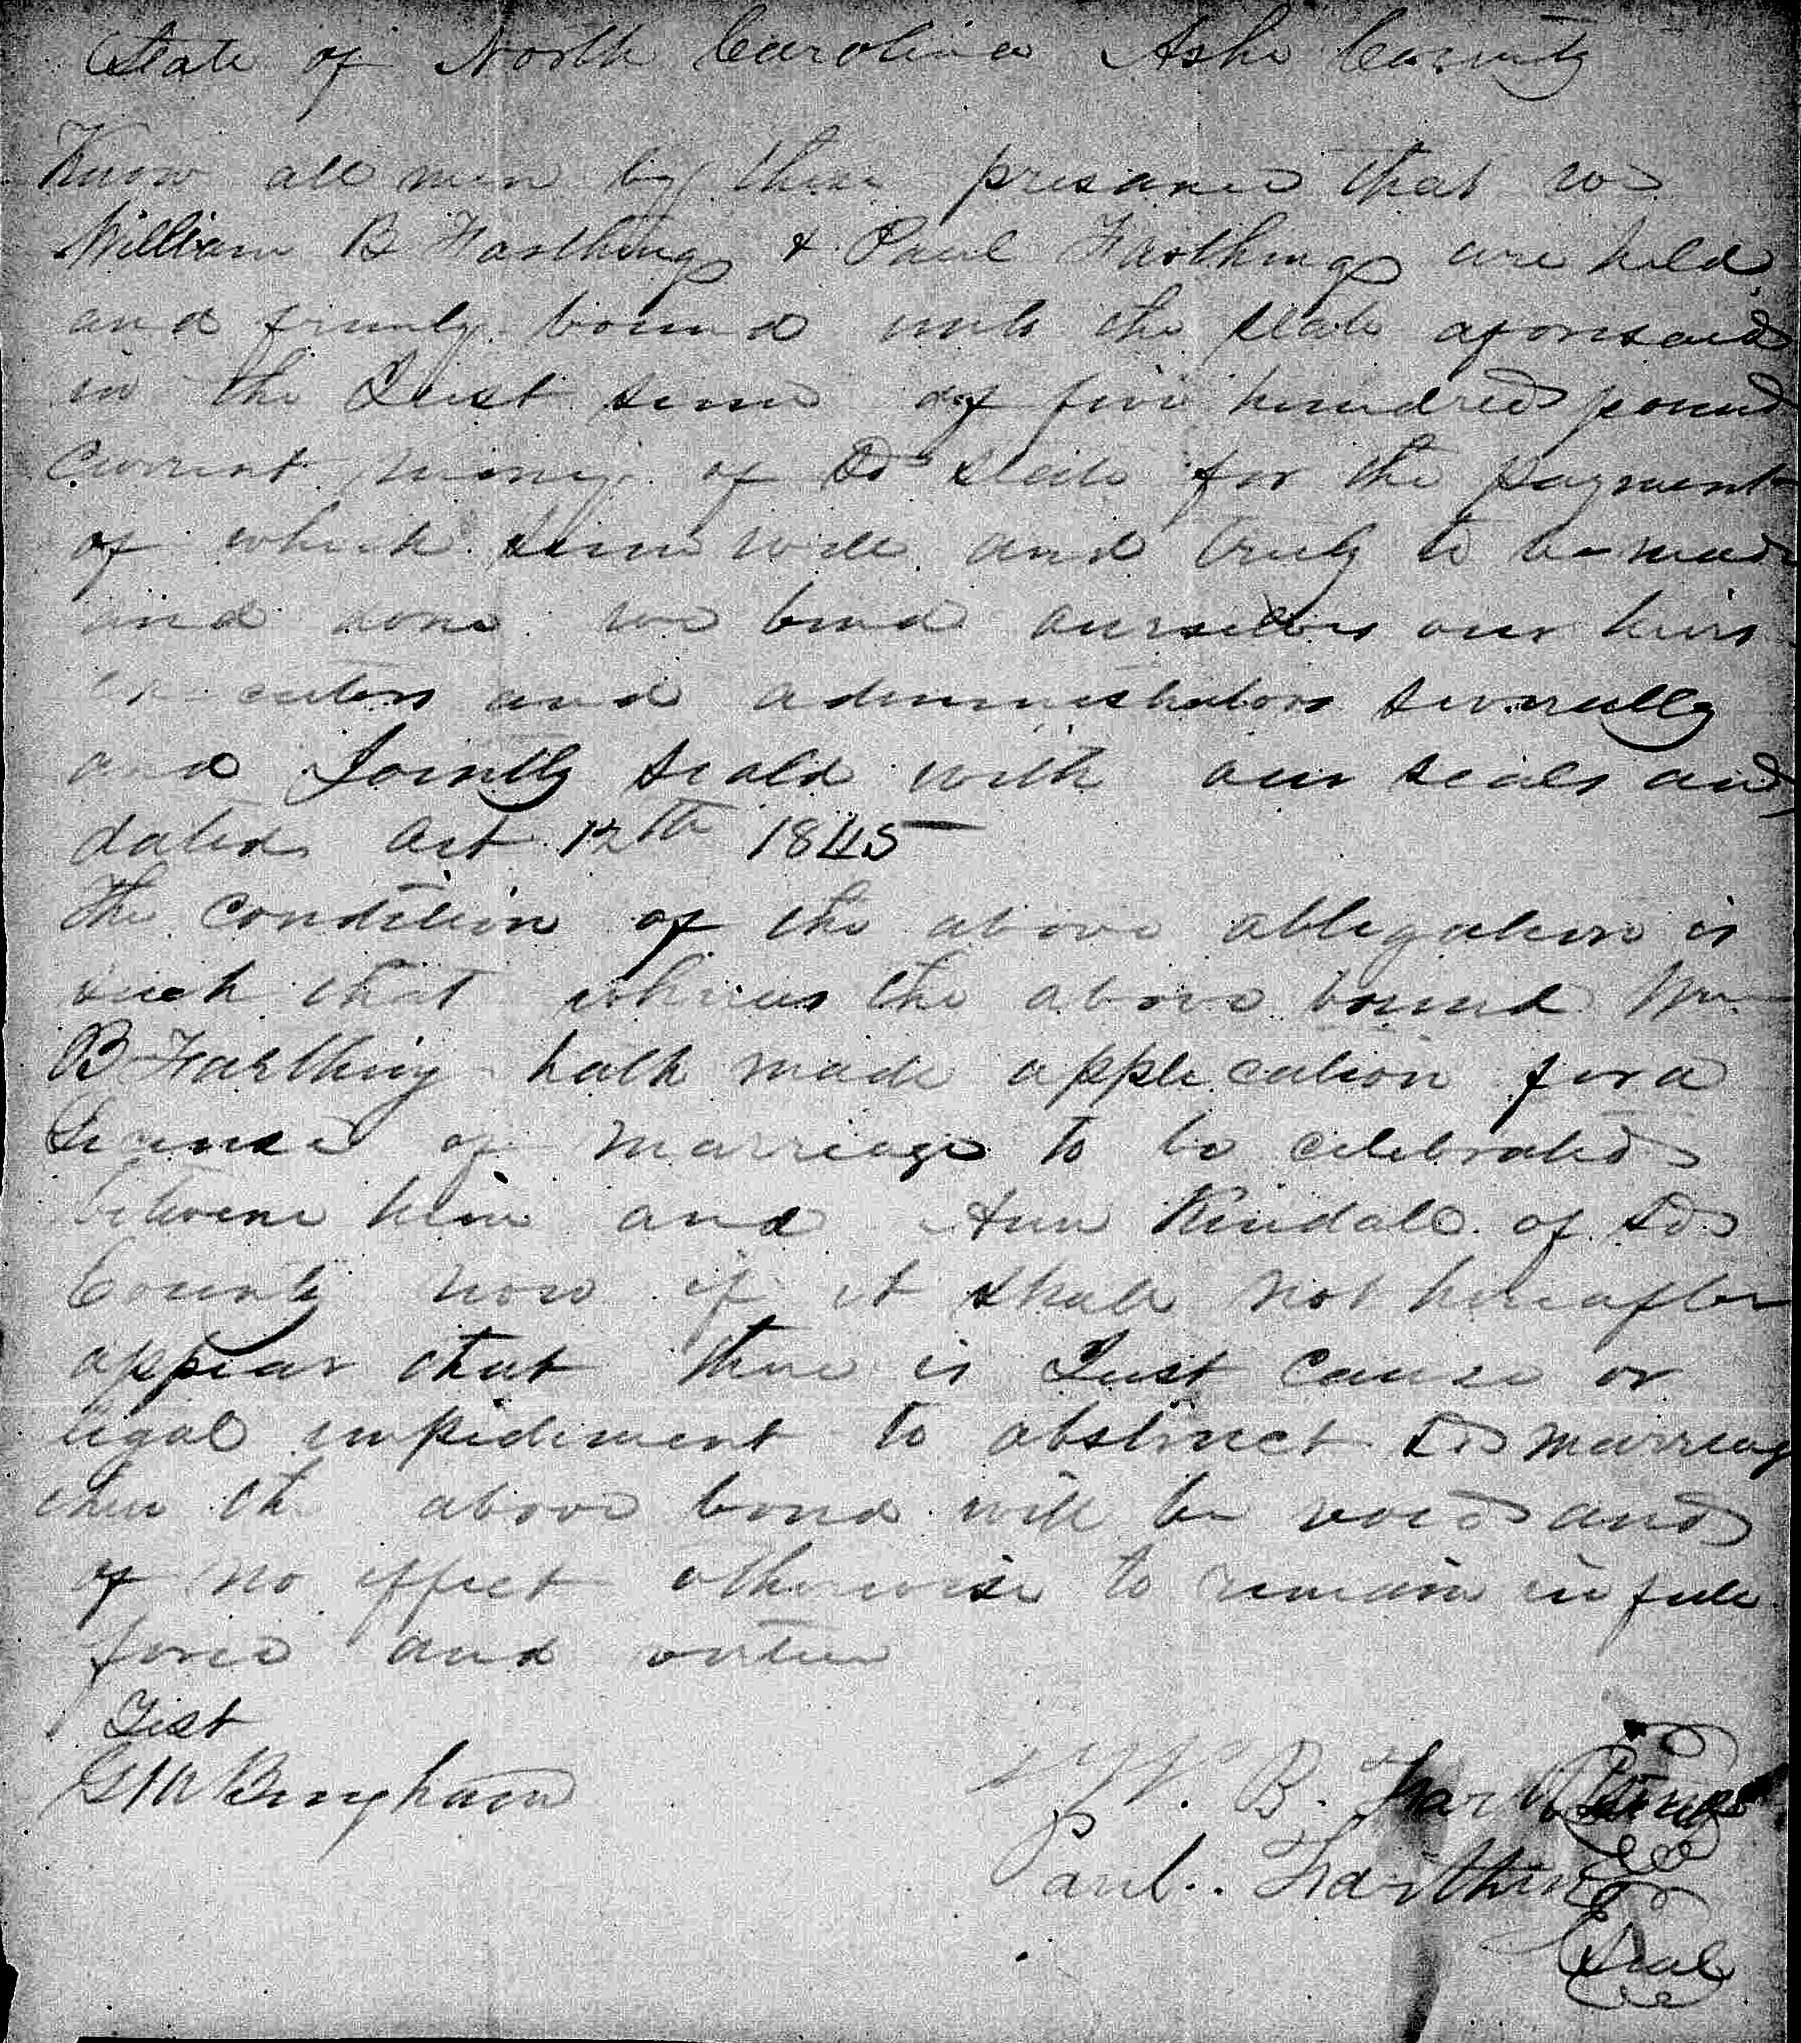 State of North Carolina Ashe County
Know all men by these presance that we
William B Farthing & Paul Farthing are held
and firmly bound unto the state aforesaid
in the Just sum of five hundred pound
current money of sd state for the payment
of which sum well and truly to be made
and done we bind ourselves our heirs
executors and administrators severally
and Jointly seald with our seals and
dated Oct 12th 1845
The condition of the above obligation is
such that whereas the above bound Wm
B Farthing hath made application for a
License of marriage to be celebrated
between him and Ann Kindall of sd
County now if it shall not hereafter
appear that there is Just cause or
legal impediment to obstruct sd marriag
then the above bond will be void and
of no effect otherwise to remain in full
force and virtue
Test
G M Bingham
W. B. Farthing
Paul Farthing
Seal